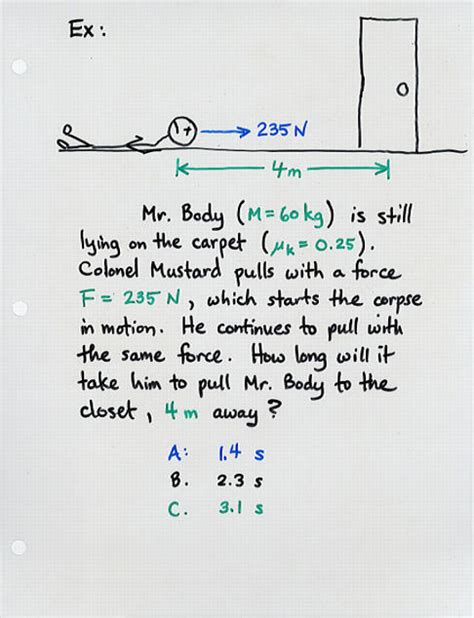 Ex:
235 N
4m
Mr. Body (M = 60 kg) is still
lying on the carpet (μk = 0.25).
Colonel Mustard pulls with a force
F = 235 N, which starts the corpse
in motion. He continues to pull with
the same force. How long will it
take him to pull Mr. Body to the
closet, 4 m away?
A: 1.4 s
B. 2.3 s
C. 3.1 s